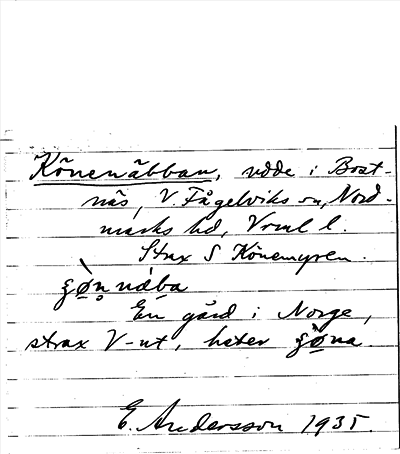 Könenäbban, udde i Bost-
näs, V. Fågelviks sn, Nord-
marks hd, Vrml l.
Strax S Könemyren.
gø̀n nába
En gård i Norge,
strax V-ut, heter gø̀na.
E. Andersson 1935.